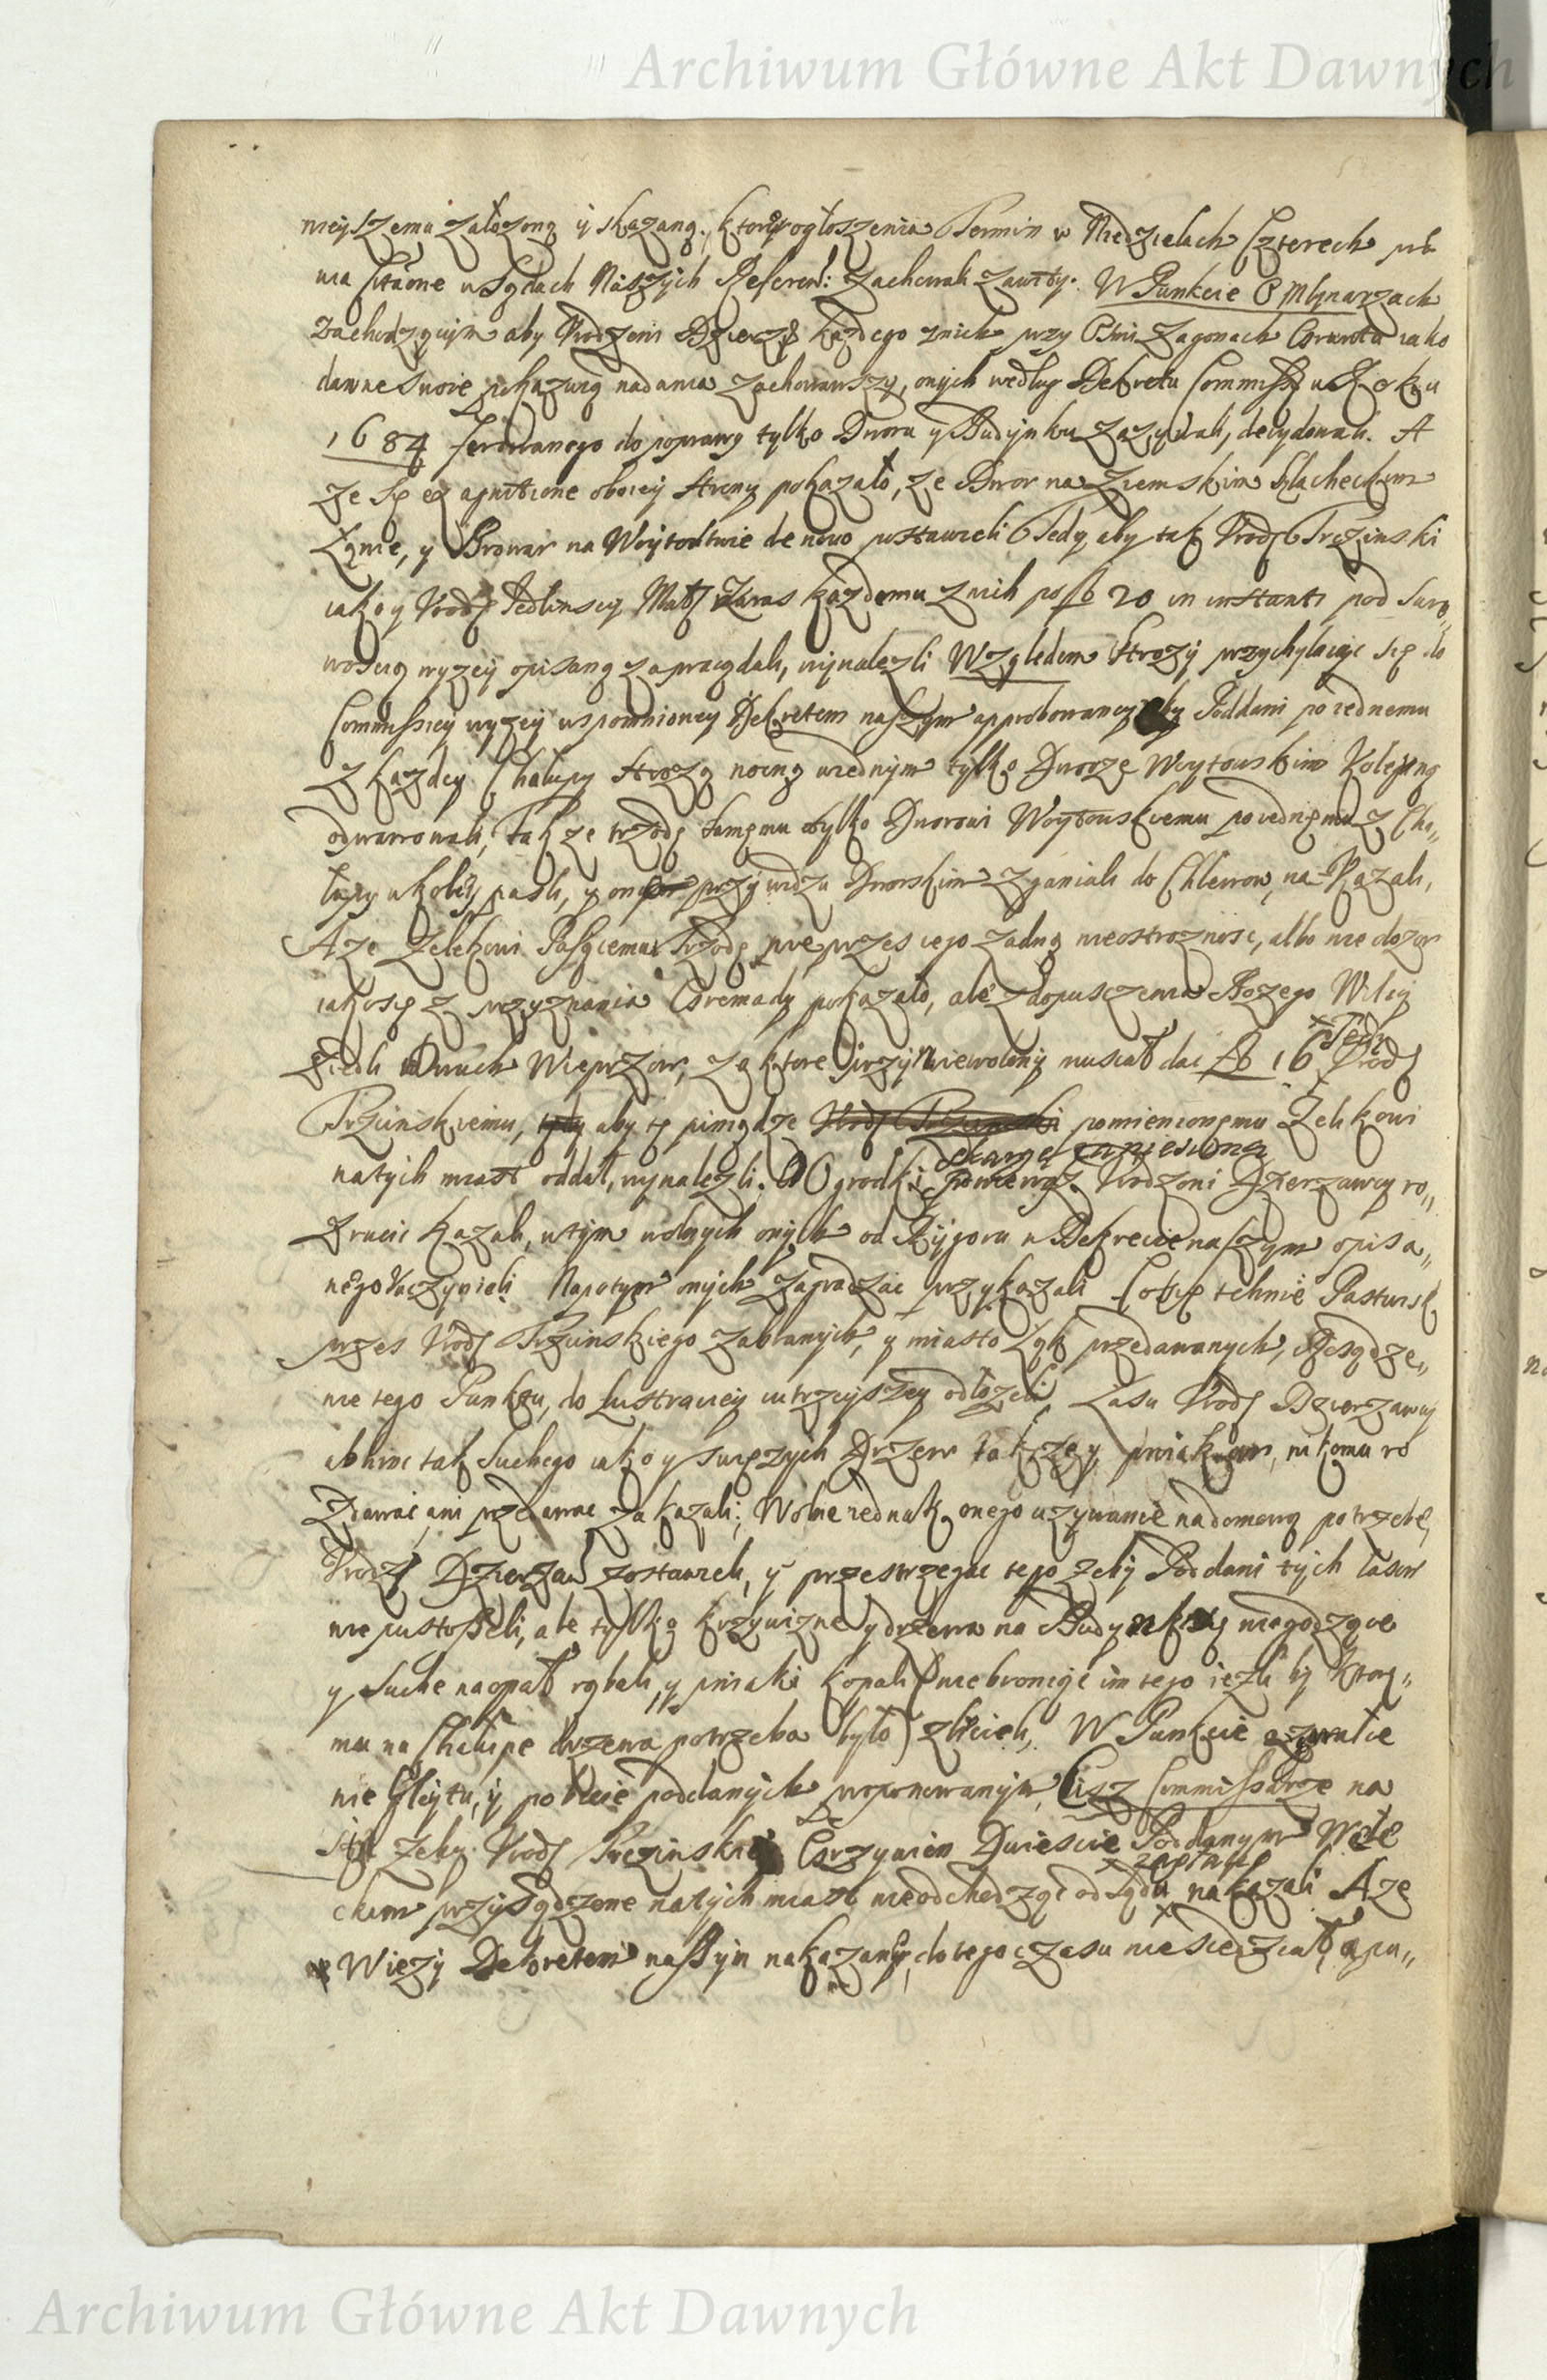 Archiwum Główne Akt Dawnych
nieyszemu założoną y skazaną, ktorey ogłoszenia Termin w Niedzielach Czterech
w Sądach Naszych Referend: zachowali zawity. W Punkcie O Młynarzach
zachodzącym aby Urodzeni Dzierż każdego znich przy Ośmi Zagonach Gruntu iako
dawne swoie pokazuią nadania zachowawszy, onych według Dekretu Commiss w Roku
1684 ferowanego do poprawy tylko Dworu y Budynku zazywali, decydowali. A
ze się ex apertione oboiey strony pokazało, ze Dwor na Ziemskim Szlacheckim
Łęnie, y Browar na Woytostwie de novo wystawieli Tedy aby tak Urodz Trczinski
iako y Urodz Jedlinscy Małż zaras każdemu znich po fl 20 in instanti pod suro,,
wością wyzey opisaną zapracydali, wynalezli Względem Strozy przychylaiąc się do
Commissiey wyzey wspomnioney Dekretem naszym approbowaney aby Poddani po iednemu
z kazdey Chałupy strozą nocną w iednym tylko Dworze Woytowskim Koleyną
odprawowali, Takze trzodę samemu tylko Dworowi Woytowskiemu po iednemu z Cha,,
łupy w koley pasli, y przy widzu Dworskim zganiali do Chlewow, na-kazali,
Aze Zelkowi Pasącemu Trzodę nie przes iego zadną nieostroznosc, albo nie dozor
iako się z przyznania Gromady pokazało, ale z dopusczenia Bozego Wilcy
ziedli Dwuch Wieprzow, za ktore przyniewolony musiał dac fl 16 Tedy Urodz
Trzcinskiemu, tedy aby te pieniądze Urodz Trzcinski pomienionemu Zelkowi
natych miast oddał, wynalezli. O Ogrodki skargę zaniesioną ponieważ Urodzoni Dzierzawcy ro,,
zrucic kazali, w tym wolnych onych od Rygoru w Dekrecie naszym opisa,,
nego uczynieli Napotym onych zagradzac przykazali Co się tchnie Pastwisk
przes Urodz Trzcinskiego zabranych, y miasto Łąk przedawanych, Rosądze,,
nie tego Punktu, do Lustraciey intrzeyszey odłozeli Lasu Urodz Dzierzawcy
abhinc tak Suchego iako y surszych Drzew takze y pniakow, nikomu ro
zdawac, ani przedawac zakazali; Wolne iednak onego uzywanie na domową potrzebę,
Urodz Dzierzaw zostawieli, y przestrzegac tego zeby Poddani tych lasow
nie pustoszeli, ale tylko krzywizne y drzewa na Budynki niegodzące
y Suche na opał rąbali, y pniaki kopali (nie broniąc im tego iezli by ktore,,
mu na Chałupe drzewa potrzeba było) zlecieli, W Punkcie o zgwałce
nie Gleytu, y pobicie poddanych proponowanym, Cisz Commissarze na
szi zeby Urodz Trczinski Grzywien Dwiescie Poddanym Wole
ckim przysądzone natych miast nieodchodząc od Sądu zapłacił nakazali Aze
Wiezy Dekretem naszym nakazaney, do tego czasu nie siedział,
Archiwum Główne Akt Dawnych